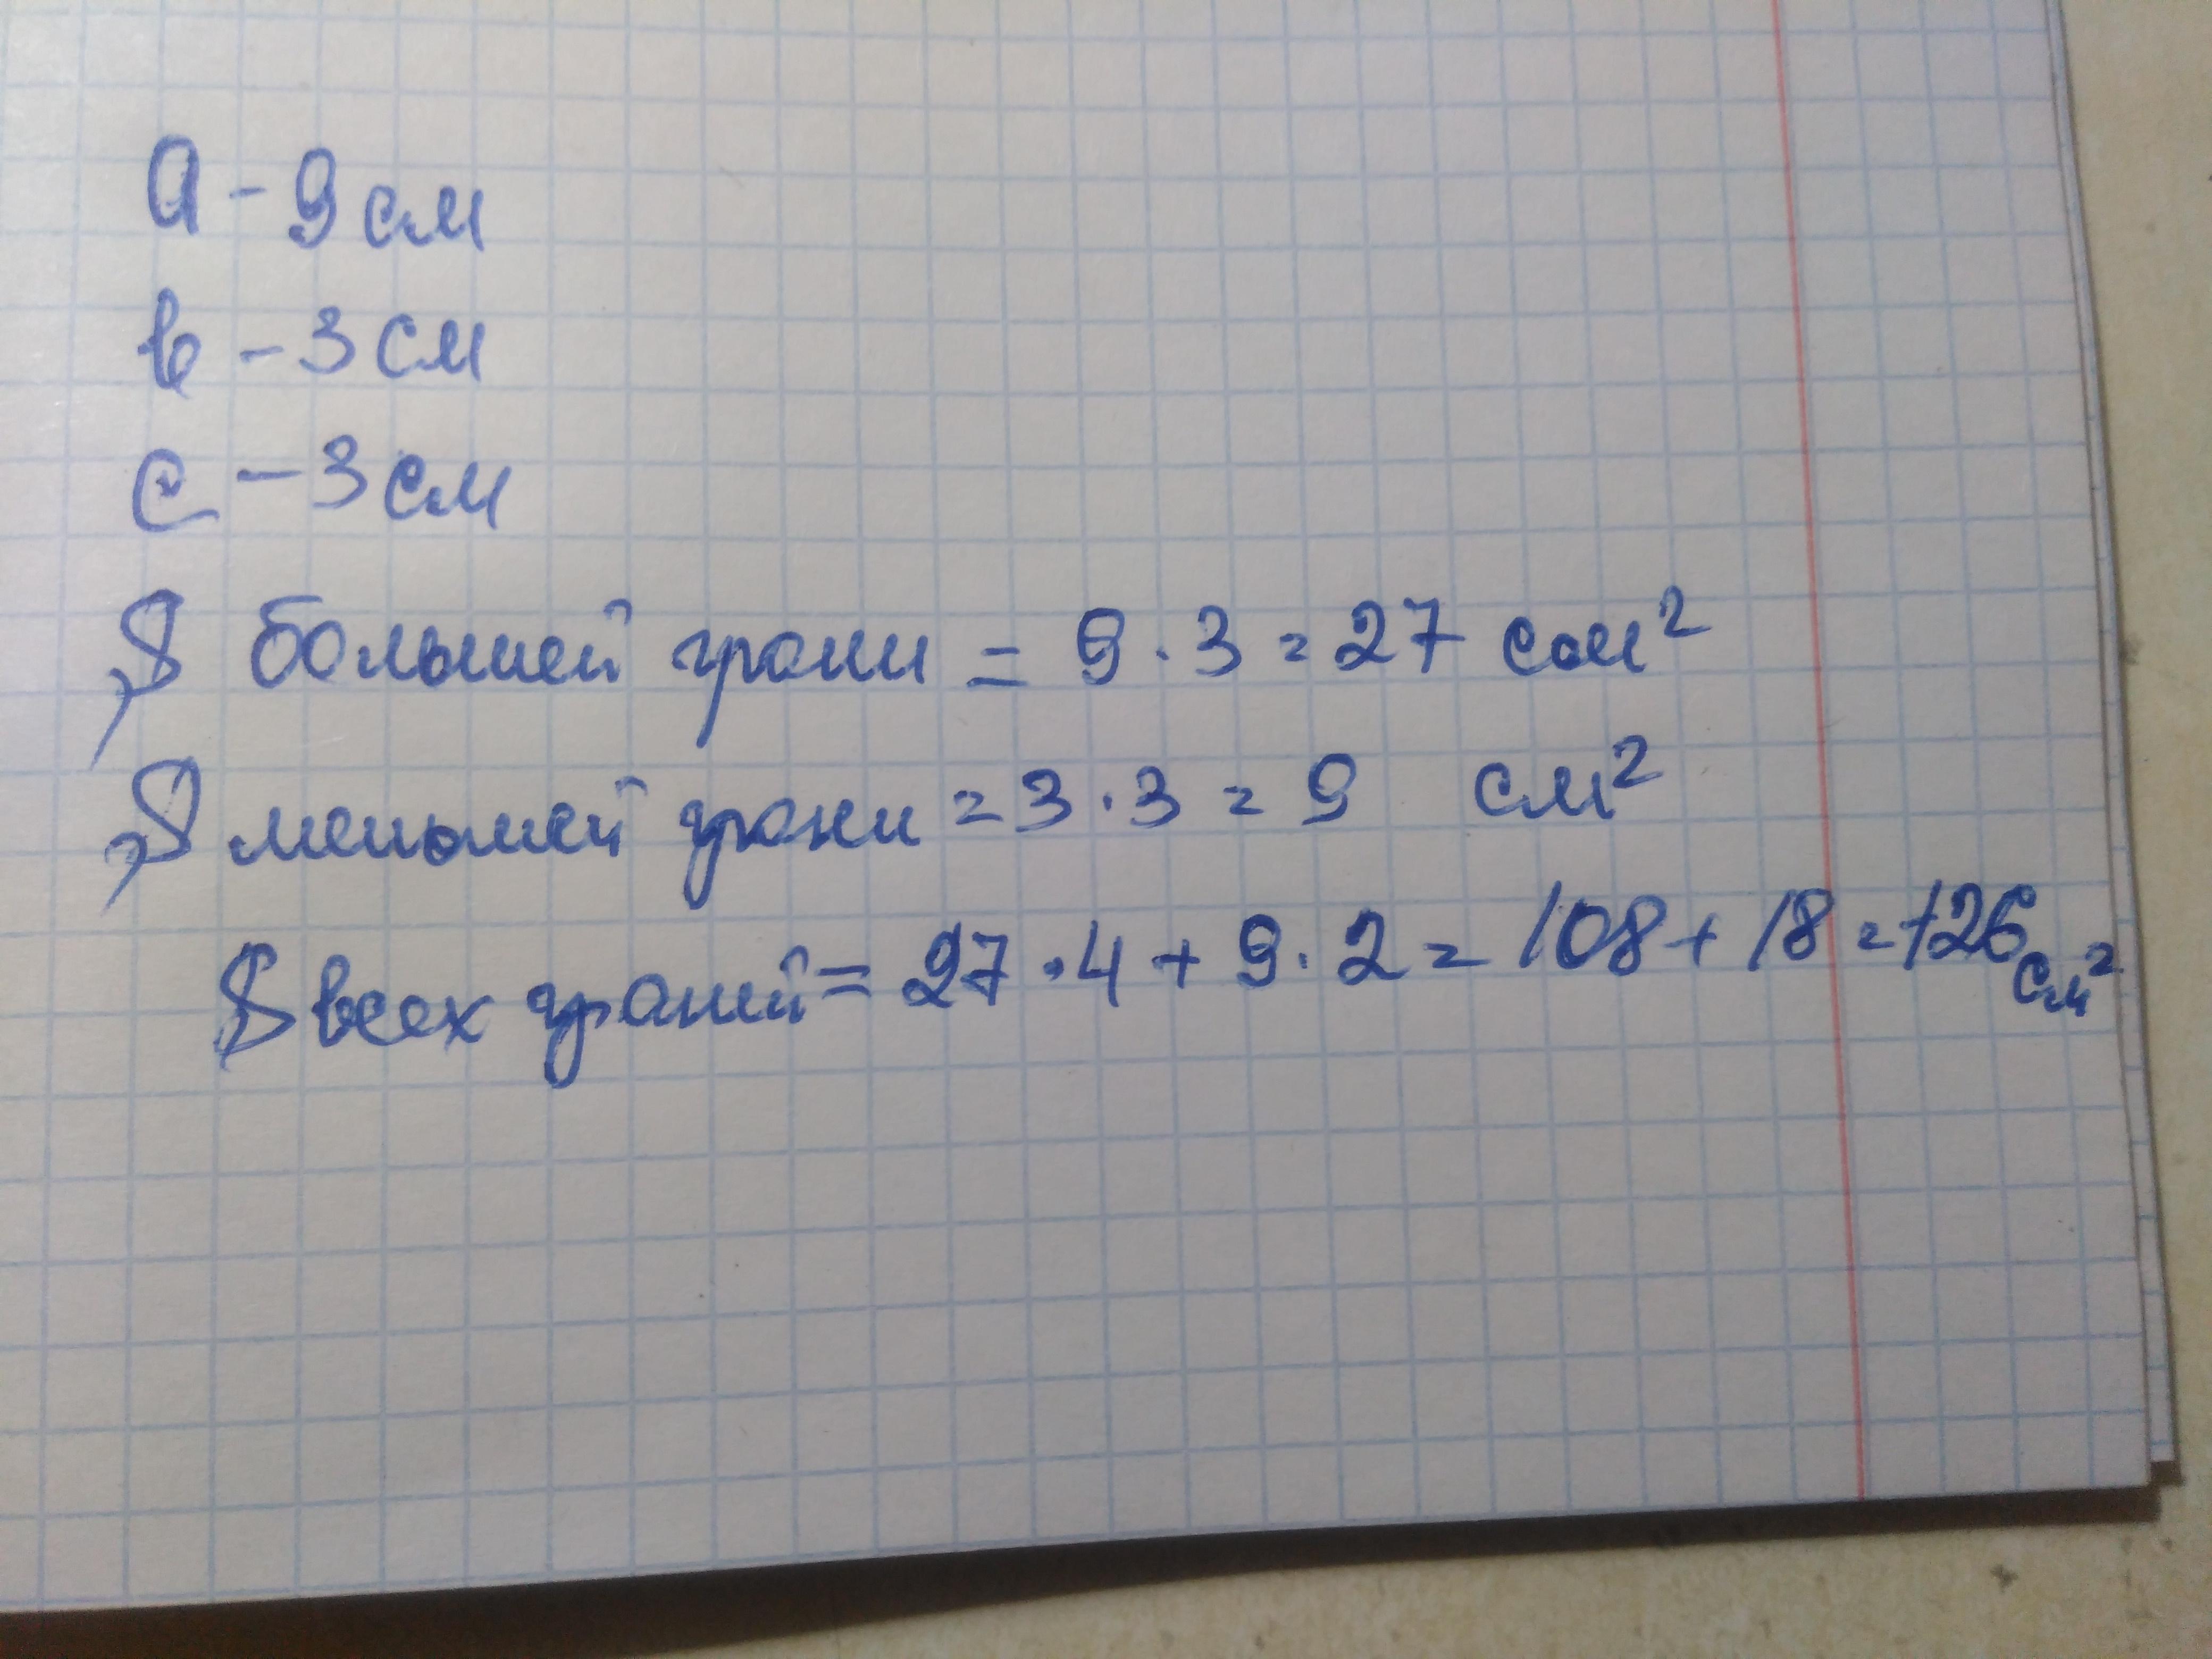 а - 9 см
в - 3 см
с - 3 см
S большей грани = 9 · 3 = 27 см²
S меньшей грани = 3 · 3 = 9 см²
S всех граней = 27 · 4 + 9 · 2 = 108 + 18 = 126 см²